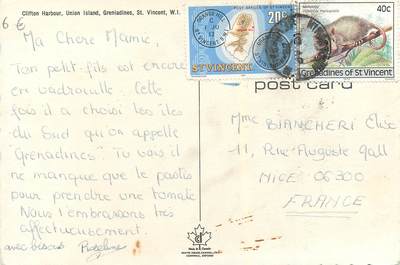 Clifton Harbour, Union Island, Grenadines, St. Vincent, W.I.
6 €
Ma Chere Mamie,
Ton petit fils est encore
en vadrouille. Cette
fois il a choisi les îles
du Sud qu'on appelle
"Grenadines". Tu vois il
ne manque que le pastis
pour prendre une tomate
Nous t'embrassons très
affectueusement.
avec bisous
20c
ST VINCENT
40c
Grenadines of St Vincent
post card
Mme BIANCHERI Elise
11, Rue Auguste Gall
NICE 06300
FRANCE